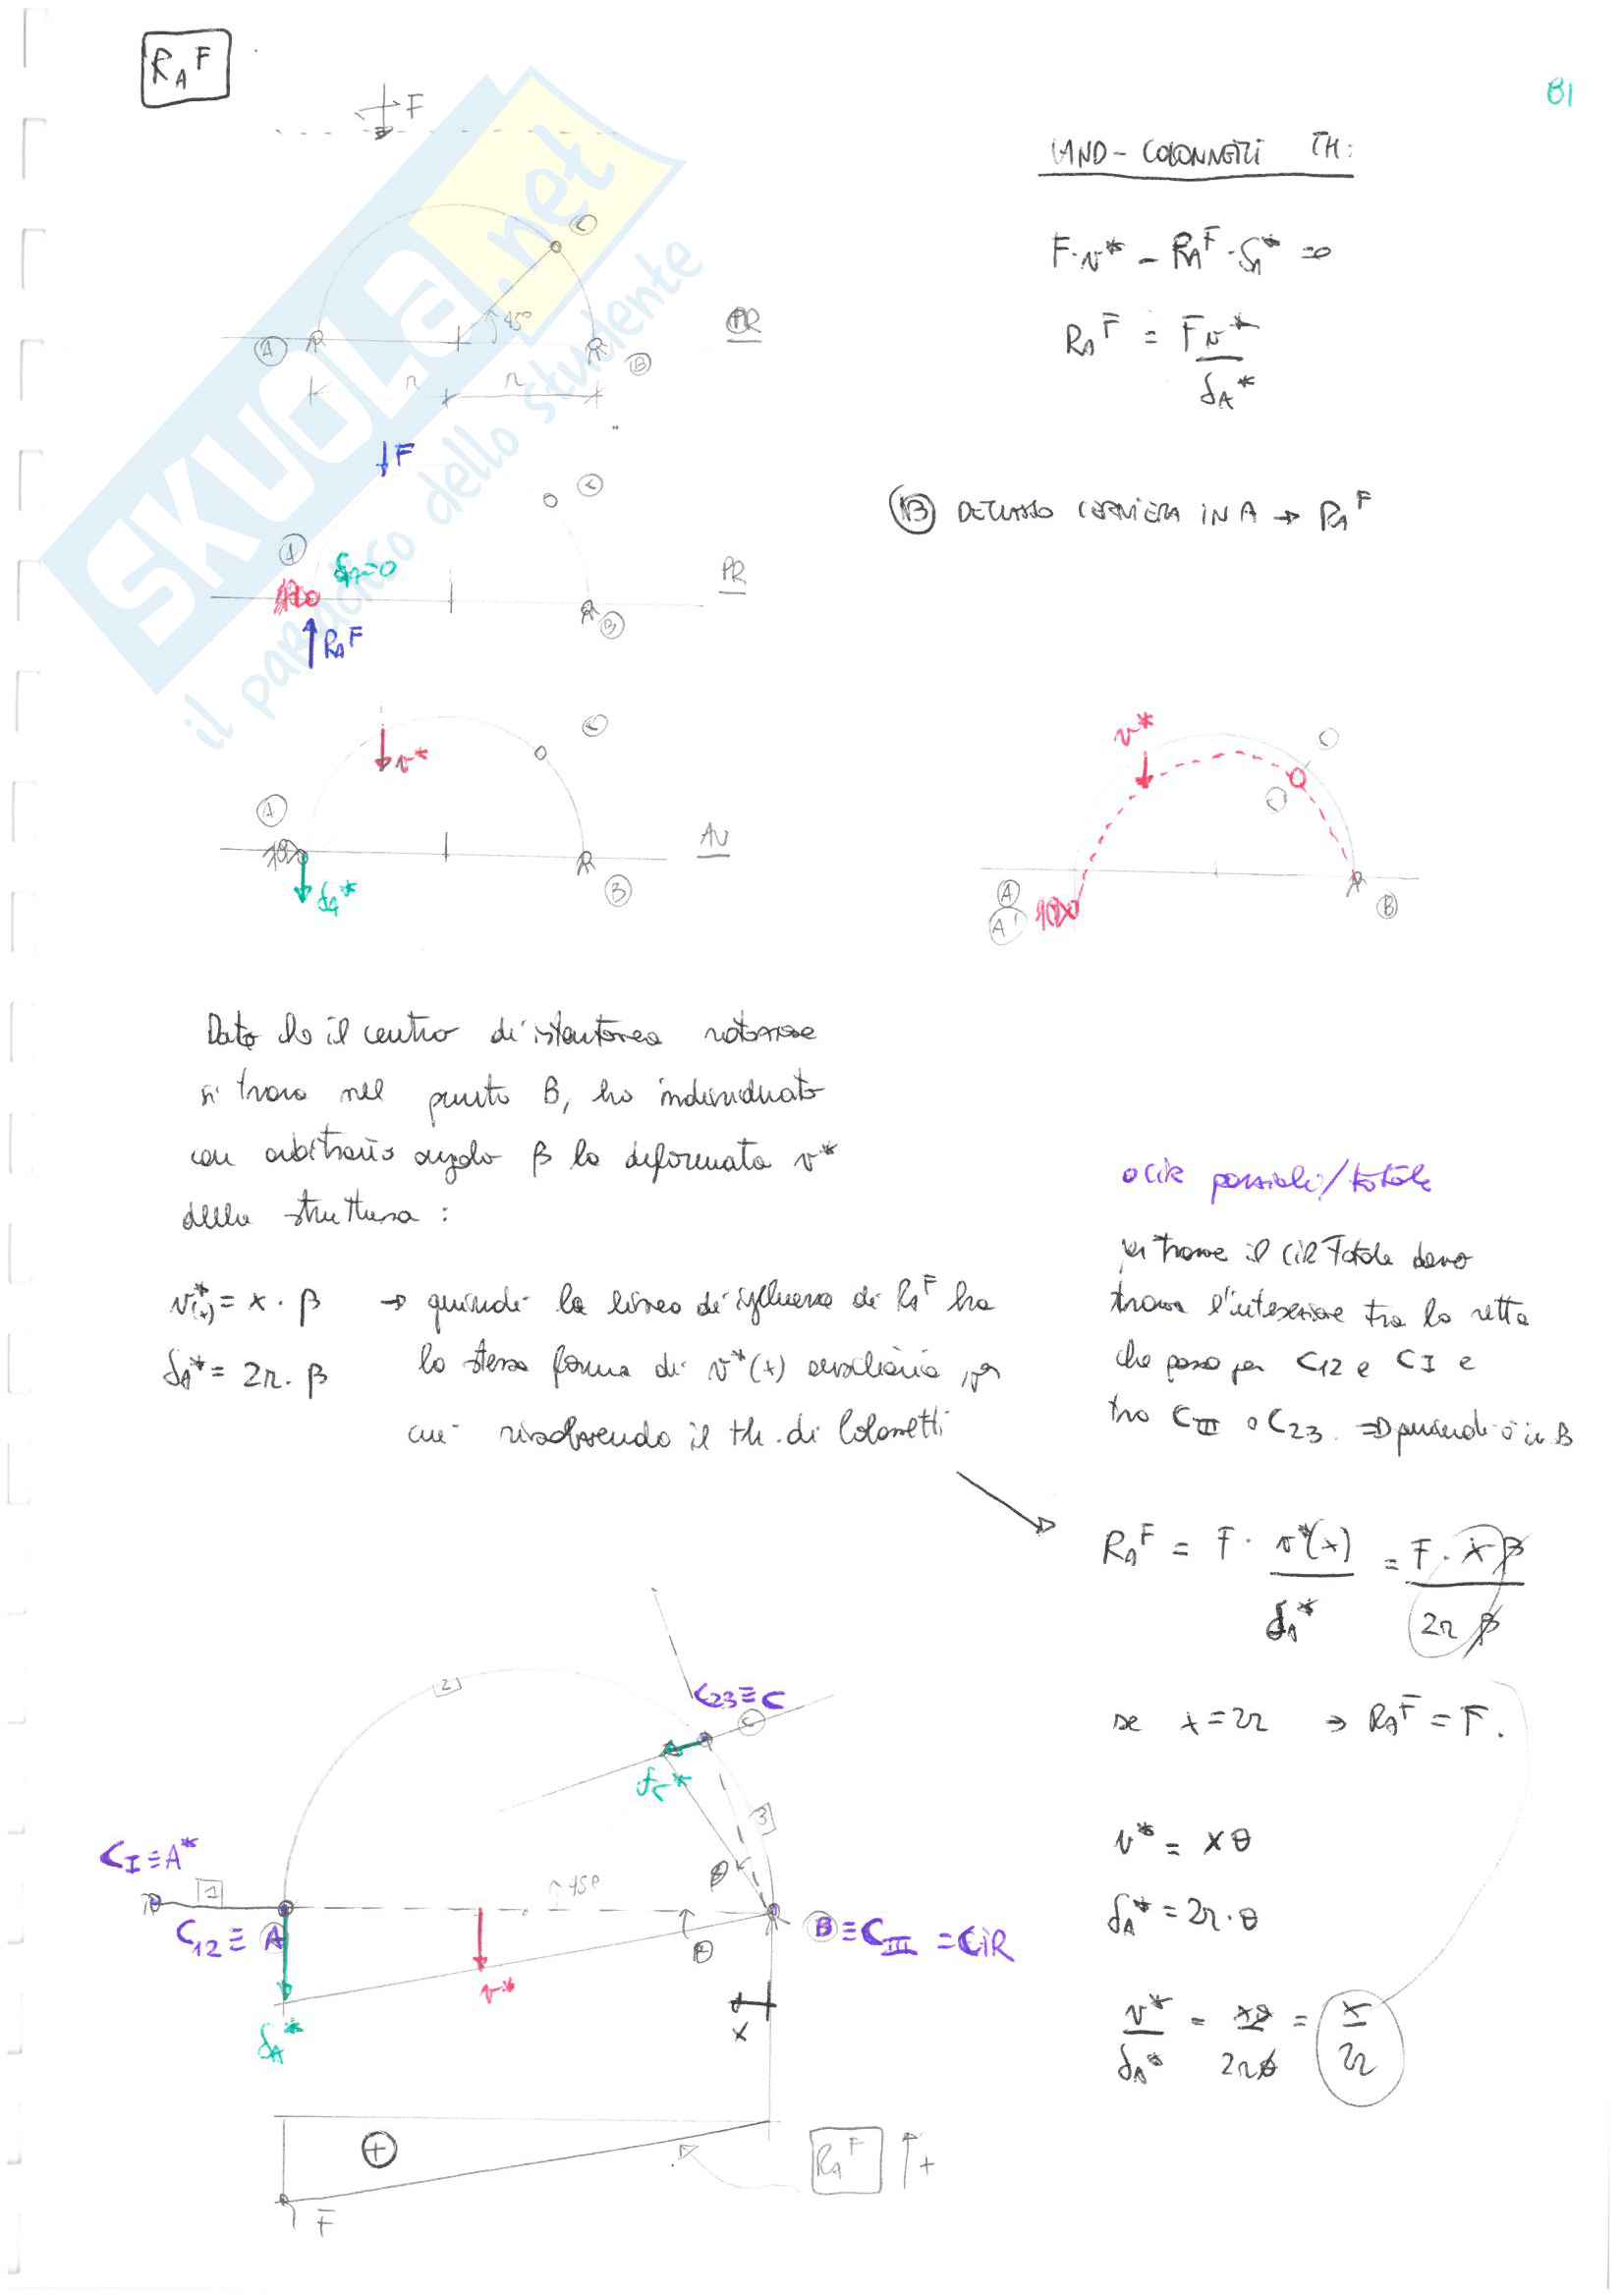 R_A^F
81
F
LAND-COLONNETTI TH:
F·v* - R_A^F·δ_A* = 0
C
45°
A
B
PR
r r
R_A^F = F v* / δ_A*
F
C
B DECLASSO CERNIERA IN A → R_A^F
A
δ_A=0
PR
B
R_A^F
v*
C
A
AU
δ_A*
B
v*
C
C'
A
A'
B
SKUOLA.net
il paradiso dello studente
Dato che il centro di istantanea rotazione
si trova nel punto B, ho individuato
con arbitrario angolo β la deformata v*
della struttura:
v*(x) = x · β → quindi la linea di influenza di R_A^F ha
δ_A* = 2r · β la stessa forma di v*(x) ausiliaria, per
cui risolvendo il th. di Colonnetti
o CIR parziali/totale
per trovare il CIR Totale devo
trovare l'intersezione tra la retta
che passa per C12 e CI e
tra CIII e C23. ⇒ quindi è in B
R_A^F = F · v*(x) / δ_A* = F · xβ / 2rβ
se x = 2r ⇒ R_A^F = F.
2
C23 ≡ C
C
δ_C*
3
θ
CI ≡ A*
1
45°
C12 ≡ A
θ
B ≡ CIII = CIR
v*
x
δ_A*
v* = xθ
δ_A* = 2r·θ
v* / δ_A* = xθ / 2rθ = x / 2r
+
R_A^F
+
F